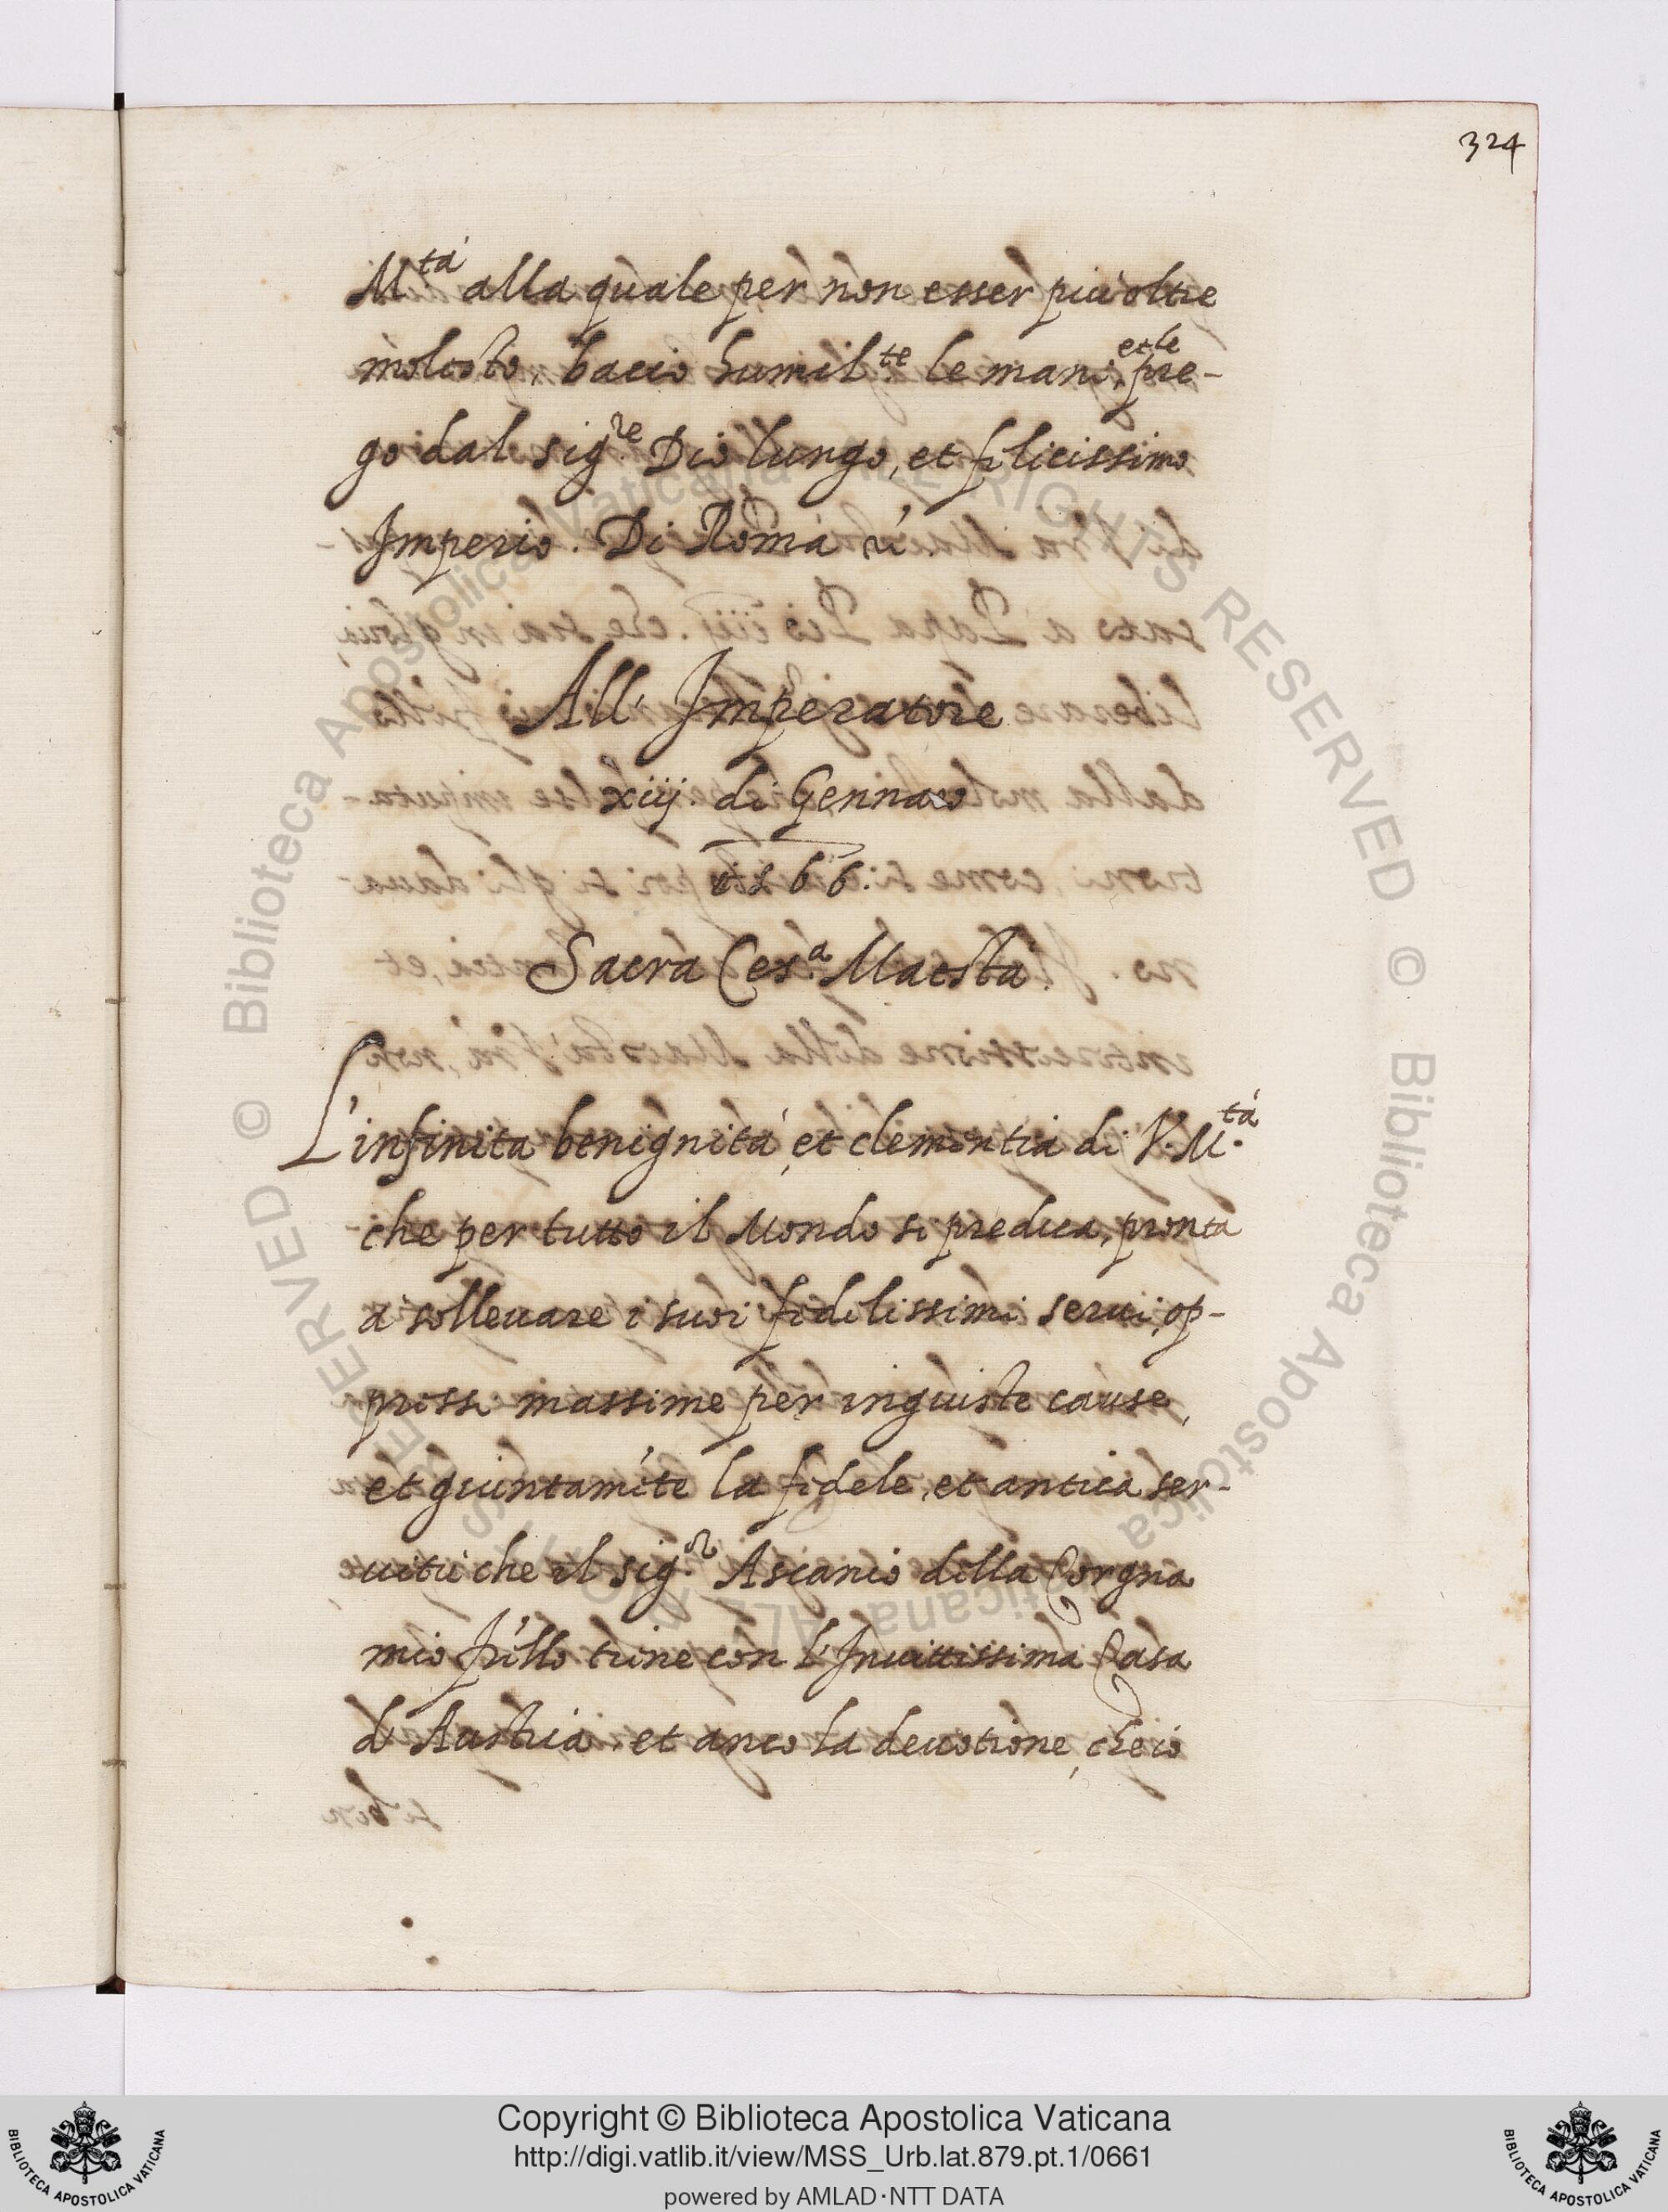 324
M.tà alla quale per non esser più oltre
molesto, bacio humil.te le mani, et le pre-
go dal sig.re Dio lungo, et felicissimo
Imperio. Di Roma
All' Imperatore
xiij. di Gennaro
1566.
Sacra Ces.a Maestà
L'infinita benignità, et clementia di V. M.tà
che per tutto il Mondo si predica, pronta
à solleuare i suoi fidelissimi serui, op-
pressi massime per ingiuste cause,
et giuntamẽte la fidele, et antica ser-
uitù che il sig.r Ascanio della Corgna
mio frillo tiene con l'Inuittissima Casa
d'Austria, et anco la deuotione, che io
Copyright © Biblioteca Apostolica Vaticana
http://digi.vatlib.it/view/MSS_Urb.lat.879.pt.1/0661
powered by AMLAD·NTT DATA
BIBLIOTECA APOSTOLICA VATICANA
BIBLIOTECA APOSTOLICA VATICANA